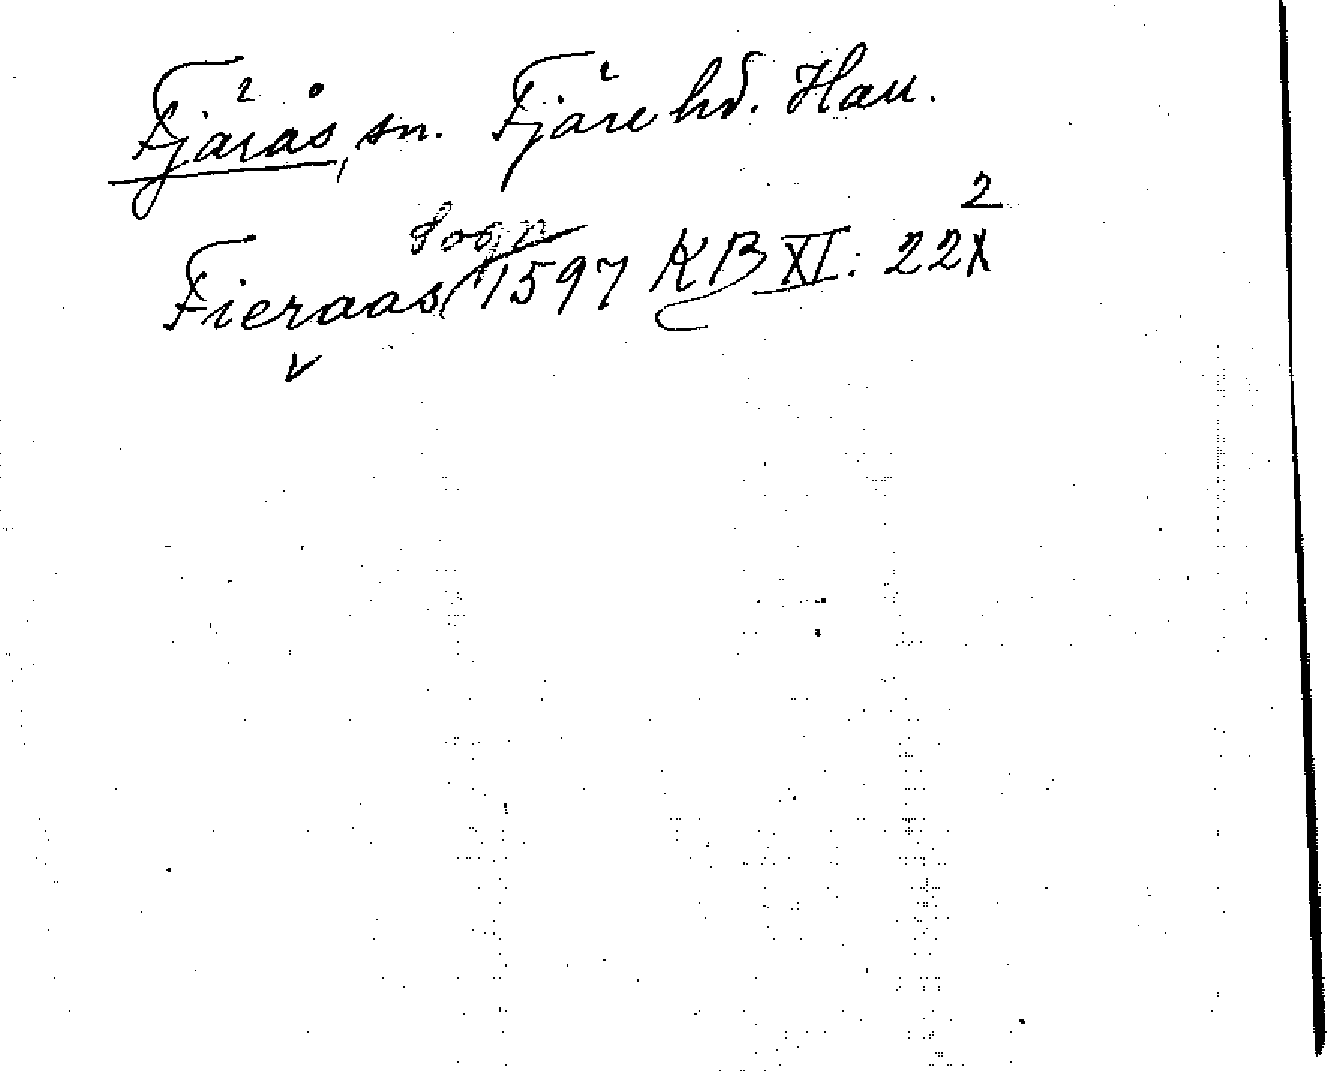 Fjärås, sn. Fjäre hd. Hall.
Sogn
Fieraas 1597 KB XI: 222